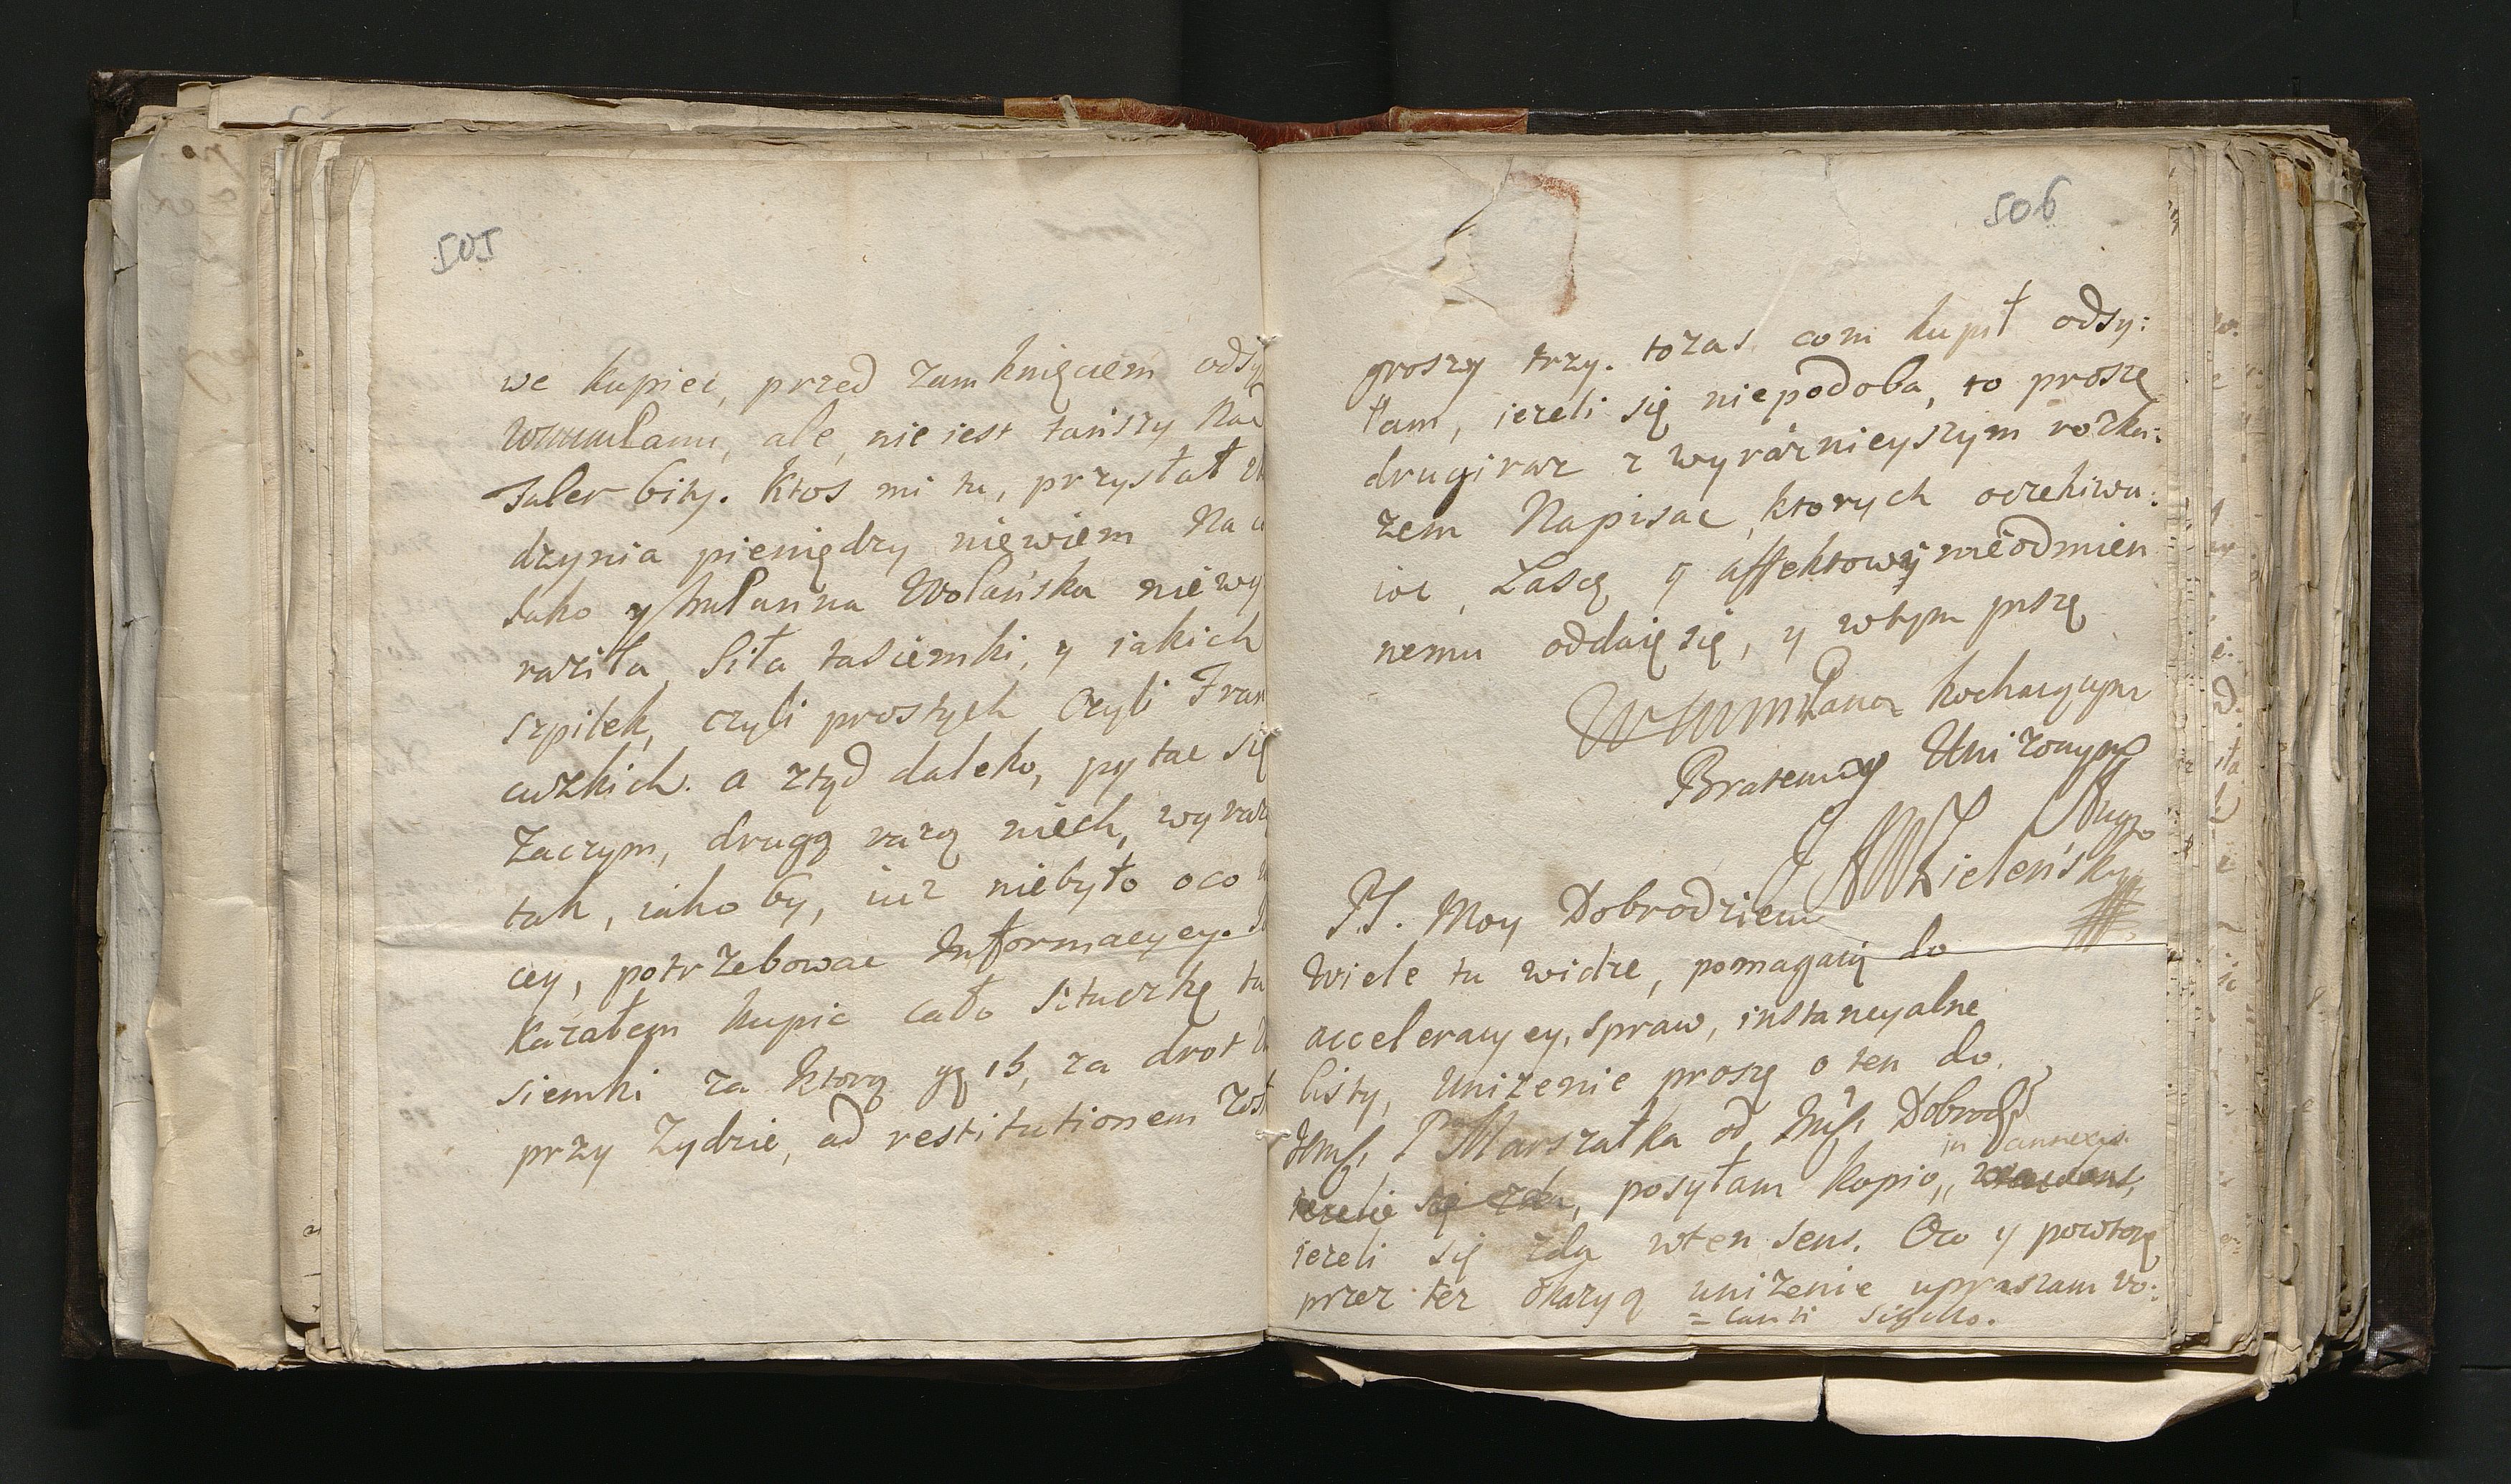 505
we kupiec, przed zamknięciem odsy
WmmPanu, ale, nie iest tańszy nad
Taler bity. Ktos mi tu, przysłał
dzynia pieniędzy niewiem na
Jako y ImPanna Wolańska niewy
raziła, siła tasiemki, y iakich
szpilek, czyli prostych czyli Fran
cuzkich. a ztąd daleko, pytac się
Zaczym, drugą razą niech, wyraz
tak, iako by, iuz niebyło oco
cey, potrzebowac Informacyey.
Kazałem kupic całą sztuczkę ta
siemki za ktorą 15, za drot
przy Zydzie, ad restitutionem zost
506
groszy trzy. tozas com kupił odsy:
łam, iezeli się niepodoba, to proszę
drugi raz z wyraznieyszym rozka:
zem Napisac, ktorych oczekiwa:
iąc, Łascę y affektowi nieodmien
nemu oddaię się, y wtym piszę
WmmPana kochaiącym
Bratem y Unizonym
Sługą
Zieleńsky
PS. Moy Dobrodzieiu
Wiele tu widzę, pomagaią do
acceleracyey, spraw, instancyalne
listy, Unizenie proszę o ten do
Marszałka od Dobrodz
in annexis
iezelie się zda, posyłam kopią,
iezeli się zda wten sens. Oco y powtorę
przez tez okazyą unizenie upraszam vo:
= lanti sigillo.